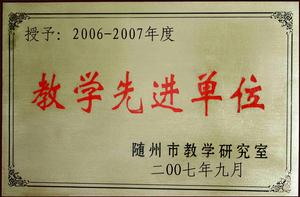 授予：2006-2007年度
教学先进单位
随州市教学研究室
二00七年九月